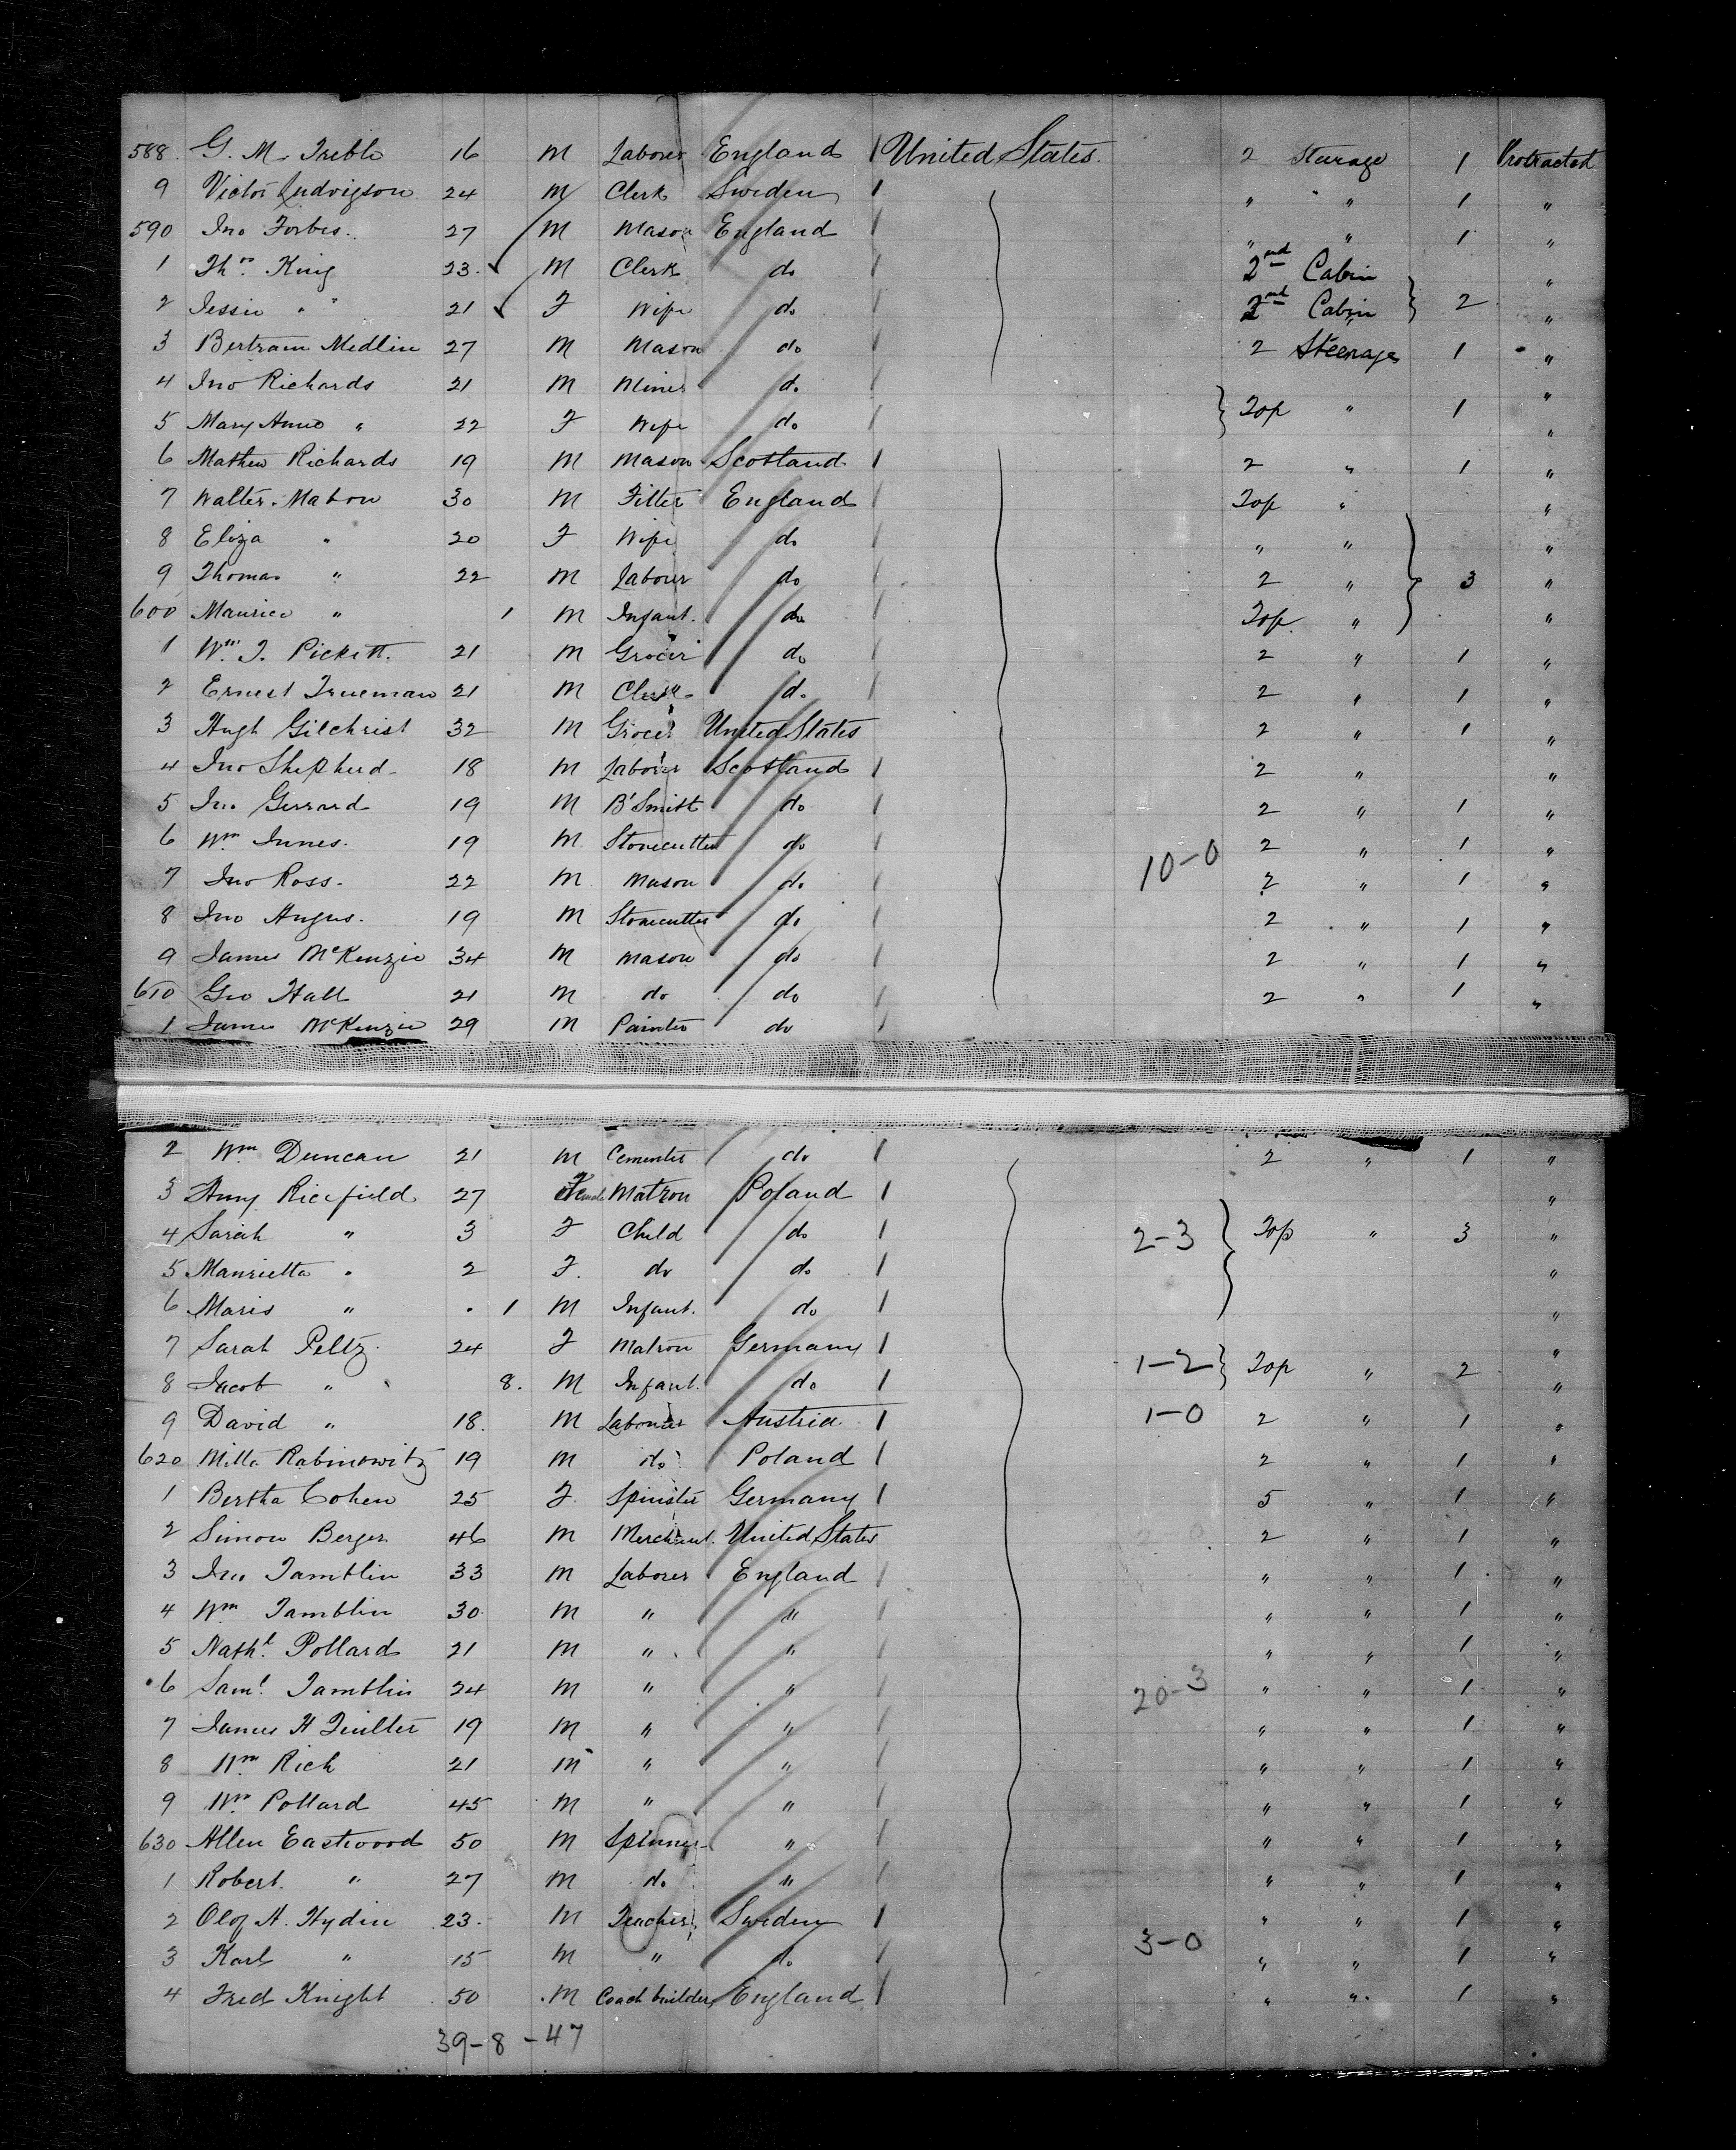 588. G. M. Treble 16 M Laborer England 1 United States. 2 Steerage 1 Protracted
9 Victor Ludvigson 24 M Clerk Sweden 1 " " 1 "
590 Jno Forbes. 27 M Mason England 1 " " 1 "
1 Thos. King 23. M Clerk do 1 2nd Cabin "
2 Jessie " 21 F Wife do 1 2nd Cabin } 2 "
3 Bertram Medlin 27 M Mason do 1 2 Steerage 1 "
4 Jno Richards 21 M Miner do 1 "
5 Mary Anne " 22 F Wife do 1 } Top " 1 "
6 Mathew Richards 19 M Mason Scotland 1 2 " 1 "
7 Walter Mabon 30 M Fitter England 1 Top " "
8 Eliza " 20 F Wife do 1 " " "
9 Thomas " 22 M Laborer do 1 2 " } 3 "
600 Maurice " 1 M Infant. do 1 Top " "
1 Wm J. Pickett. 21 M Grocer do 1 2 " 1 "
2 Ernest Trueman 21 M Clerk do 1 2 " 1 "
3 Hugh Gilchrist 32 M Grocer United States 2 " 1 "
4 Jno Shepherd 18 M Laborer Scotland 1 2 " "
5 Jno Gerrard 19 M B'Smith do 1 2 " 1 "
6 Wm Innes. 19 M Stonecutter do 1 10-0 2 " 1 "
7 Jno Ross. 22 M Mason do 1 2 " 1 "
8 Jno Angus. 19 M Stonecutter do 1 2 " 1 "
9 James McKenzie 34 M Mason do 1 2 " 1 "
610 Geo Hall 21 M do do 1 2 " 1 "
1 James McKenzie 29 M Painter do 1
2 Wm Duncan 21 M do 1 2 " 1 "
3 Amy Ricefield 27 Female Matron Poland 1 "
4 Sarah " 3 F Child do 1 2-3 } Top " 3 "
5 Manrietta " 2 F. do do 1 "
6 Maris " 1 M Infant. do 1 "
7 Sarah Peltz 24 F Matron Germany 1 "
8 Jacob " 8. M Infant. do 1 1-2 } Top " 2 "
9 David " 18. M Labourer Austria 1 1-0 2 " 1 "
620 Rabinowitz 19 M do Poland 1 2 " 1 "
1 Bertha Cohen 25 F. Spinster Germany 1 5 " 1 "
2 Simon Berger 46 M Merchant. United States 2 " 1 "
3 Jno Tamblin 33 M Laborer England 1 " " 1 "
4 Wm Tamblin 30 M " " 1 " " 1 "
5 Nathl. Pollard 21 M " " 1 " " 1 "
6 Saml. Tamblin 24 M " " 1 20-3 " " 1 "
7 James H 19 M " " 1 " " 1 "
8 Wm Rich 21 M " " 1 " " 1 "
9 Wm Pollard 45 M " " 1 " " 1 "
630 Allen Eastwood 50 M Spinner " 1 " " 1 "
1 Robert " 27 M do " 1 " " 1 "
2 Olof A. Hydin 23. M Teacher Sweden 1 " " 1 "
3 Karl " 15 M " do 1 3-0 " " 1 "
4 Fred Knight 50 M Coach builder England 1 " " 1 "
39-8-47